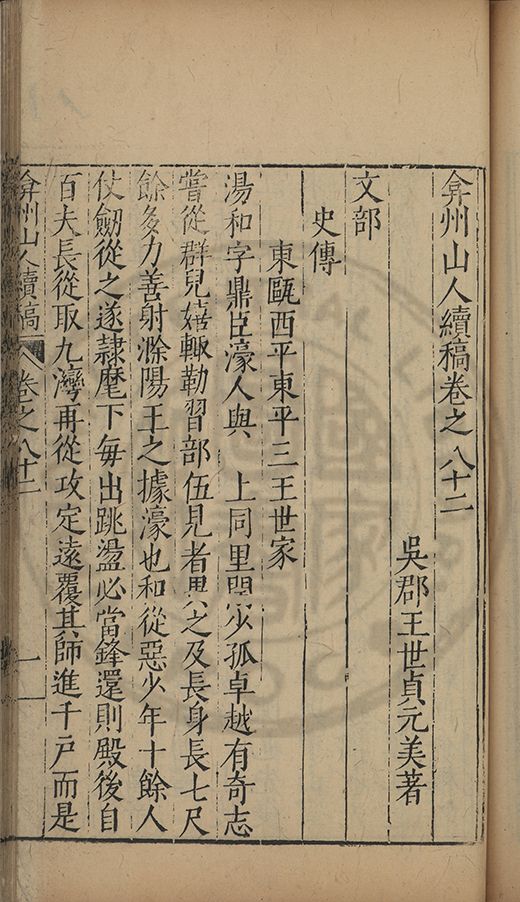 弇州山人續稿卷之八十二
吳郡王世貞元美著
文部
史傳
東甌西平東平三王世家
湯和字鼎臣濠人與 上同里閈少孤卓越有奇志
嘗從群兒嬉輙勒習部伍見者異之及長身長七尺
餘多力善射滁陽王之據濠也和從惡少年十餘人
仗劒從之遂隷麾下毎出跳盪必當鋒還則殿後自
百夫長從取九灣再從攻定遠覆其師進千戸而是
弇州山人續稿 卷之八十二 一